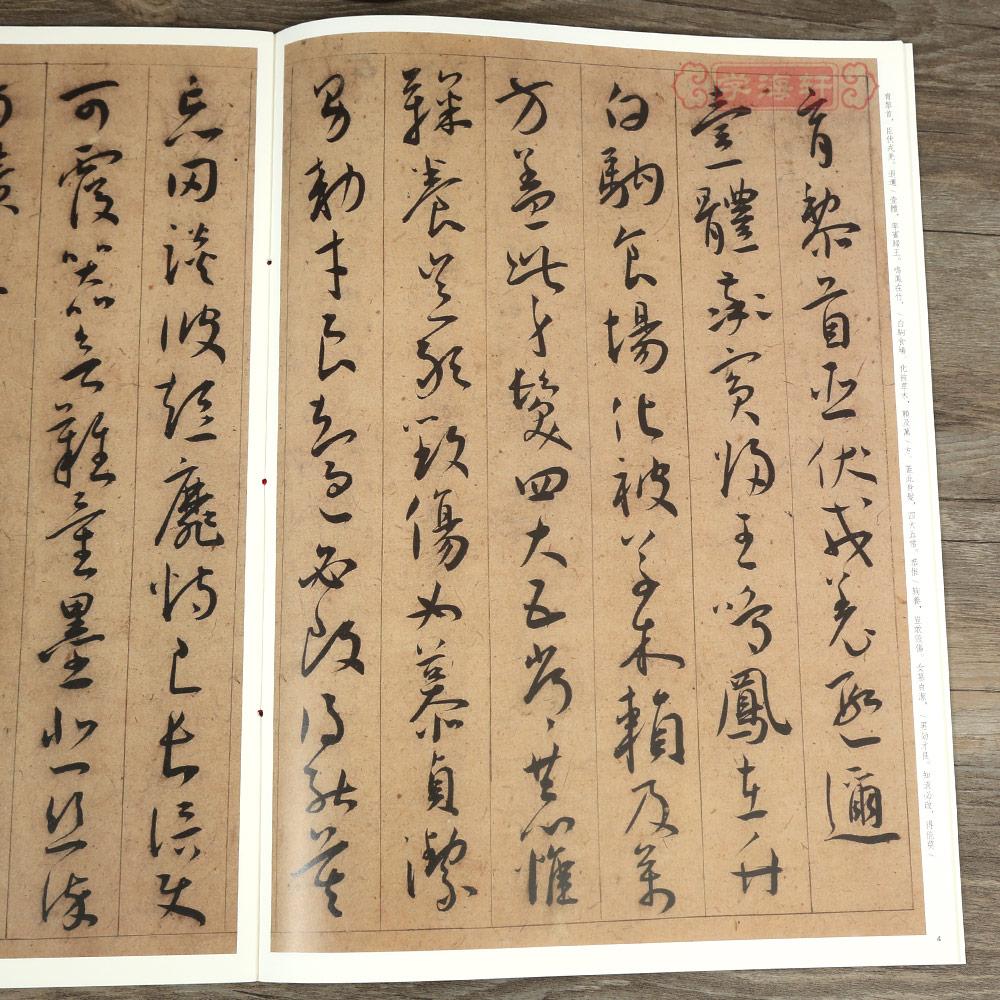 学海轩
育黎首臣伏戎羌遐邇
壹體率賓歸王鳴鳳在竹
白駒食場化被草木賴及萬
方蓋此身髮四大五常恭惟
鞠養豈敢毀傷女慕貞潔
男効才良知過必改得能莫
忘罔談彼短靡恃己長信使
可覆器欲難量墨悲絲染
育黎首，臣伏戎羌。遐邇/壹體，率賓歸王。鳴鳳在竹，/白駒食場。化被草木，賴及萬/方。蓋此身髮，四大五常。恭惟/鞠養，豈敢毀傷。女慕貞潔，/男効才良。知過必改，得能莫/
4